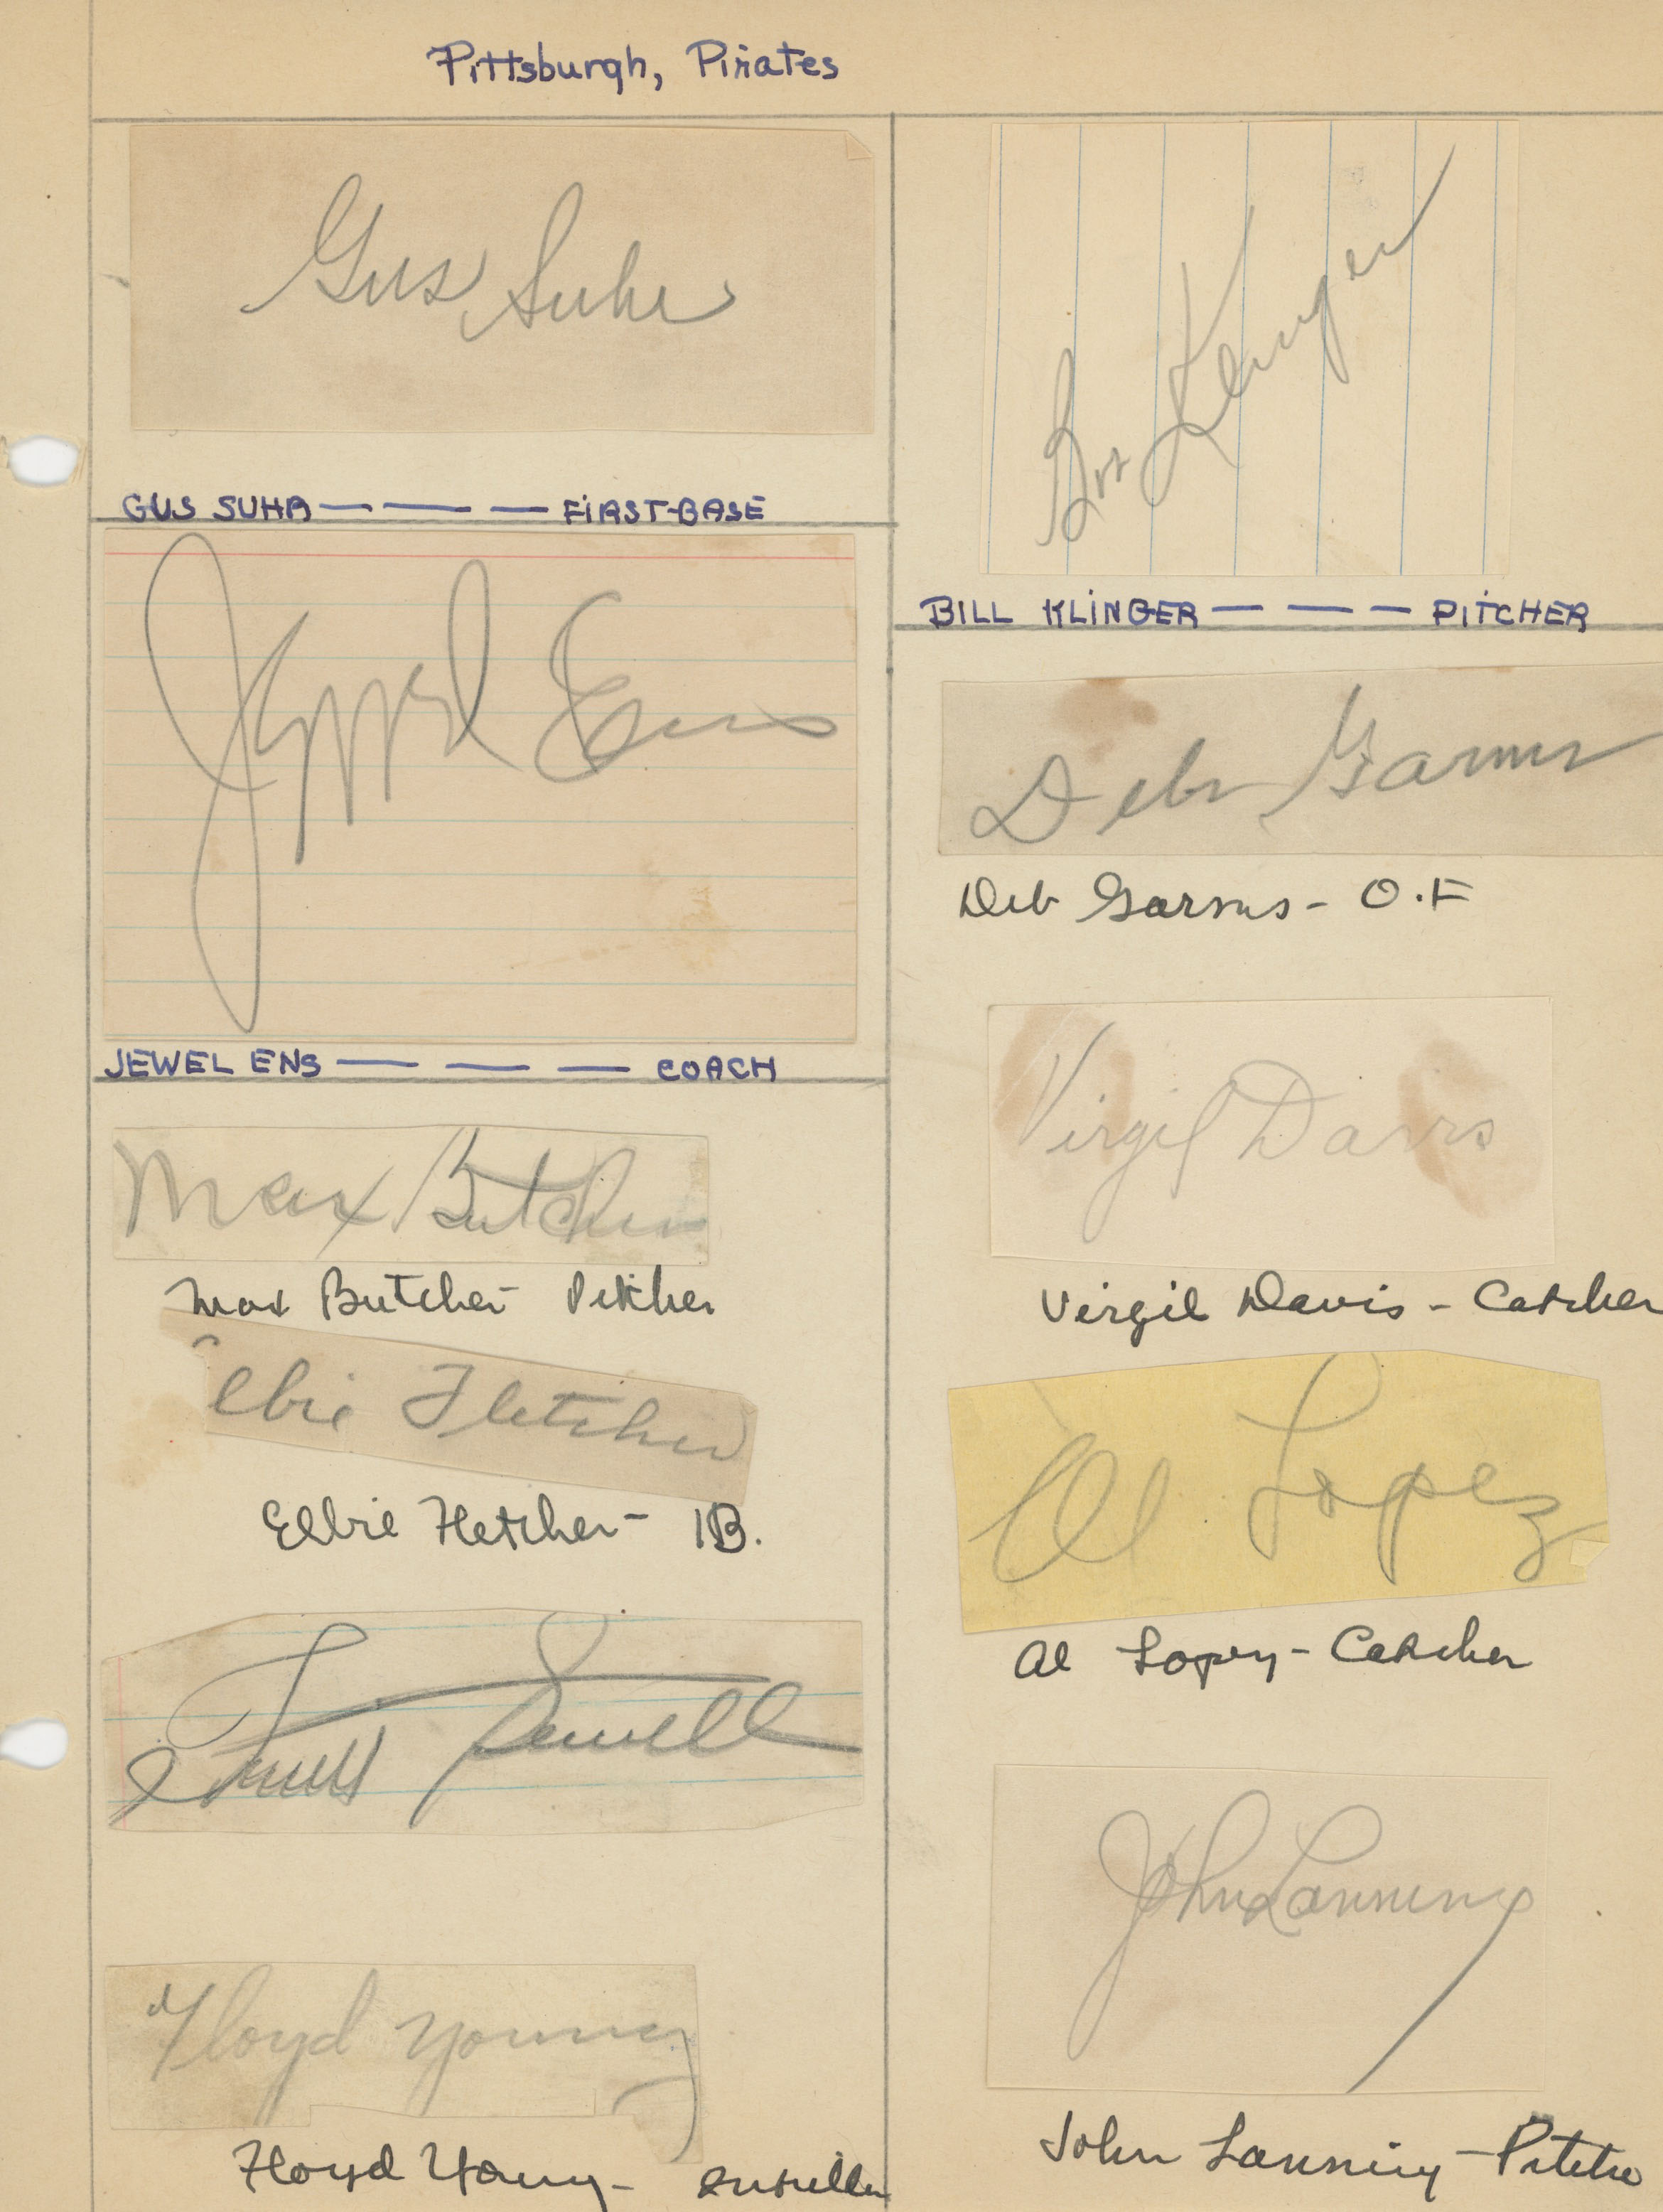 Pittsburgh, Pirates
Gus Suhr
GUS SUHR — — — FIRST-BASE
Jewel Ens
JEWEL ENS — — — COACH
Max Butcher
Max Butcher - Pitcher
Elbie Fletcher
Elbie Fletcher - 1B.
Truett Sewell
Floyd Young
Floyd Young - Infielder
Klinger
BILL KLINGER — — — PITCHER
Deb Garms
Deb Garms - O.F
Virgil Davis
Virgil Davis - Catcher
Al Lopez
Al Lopez - Catcher
John Lanning
John Lanning - Pitcher